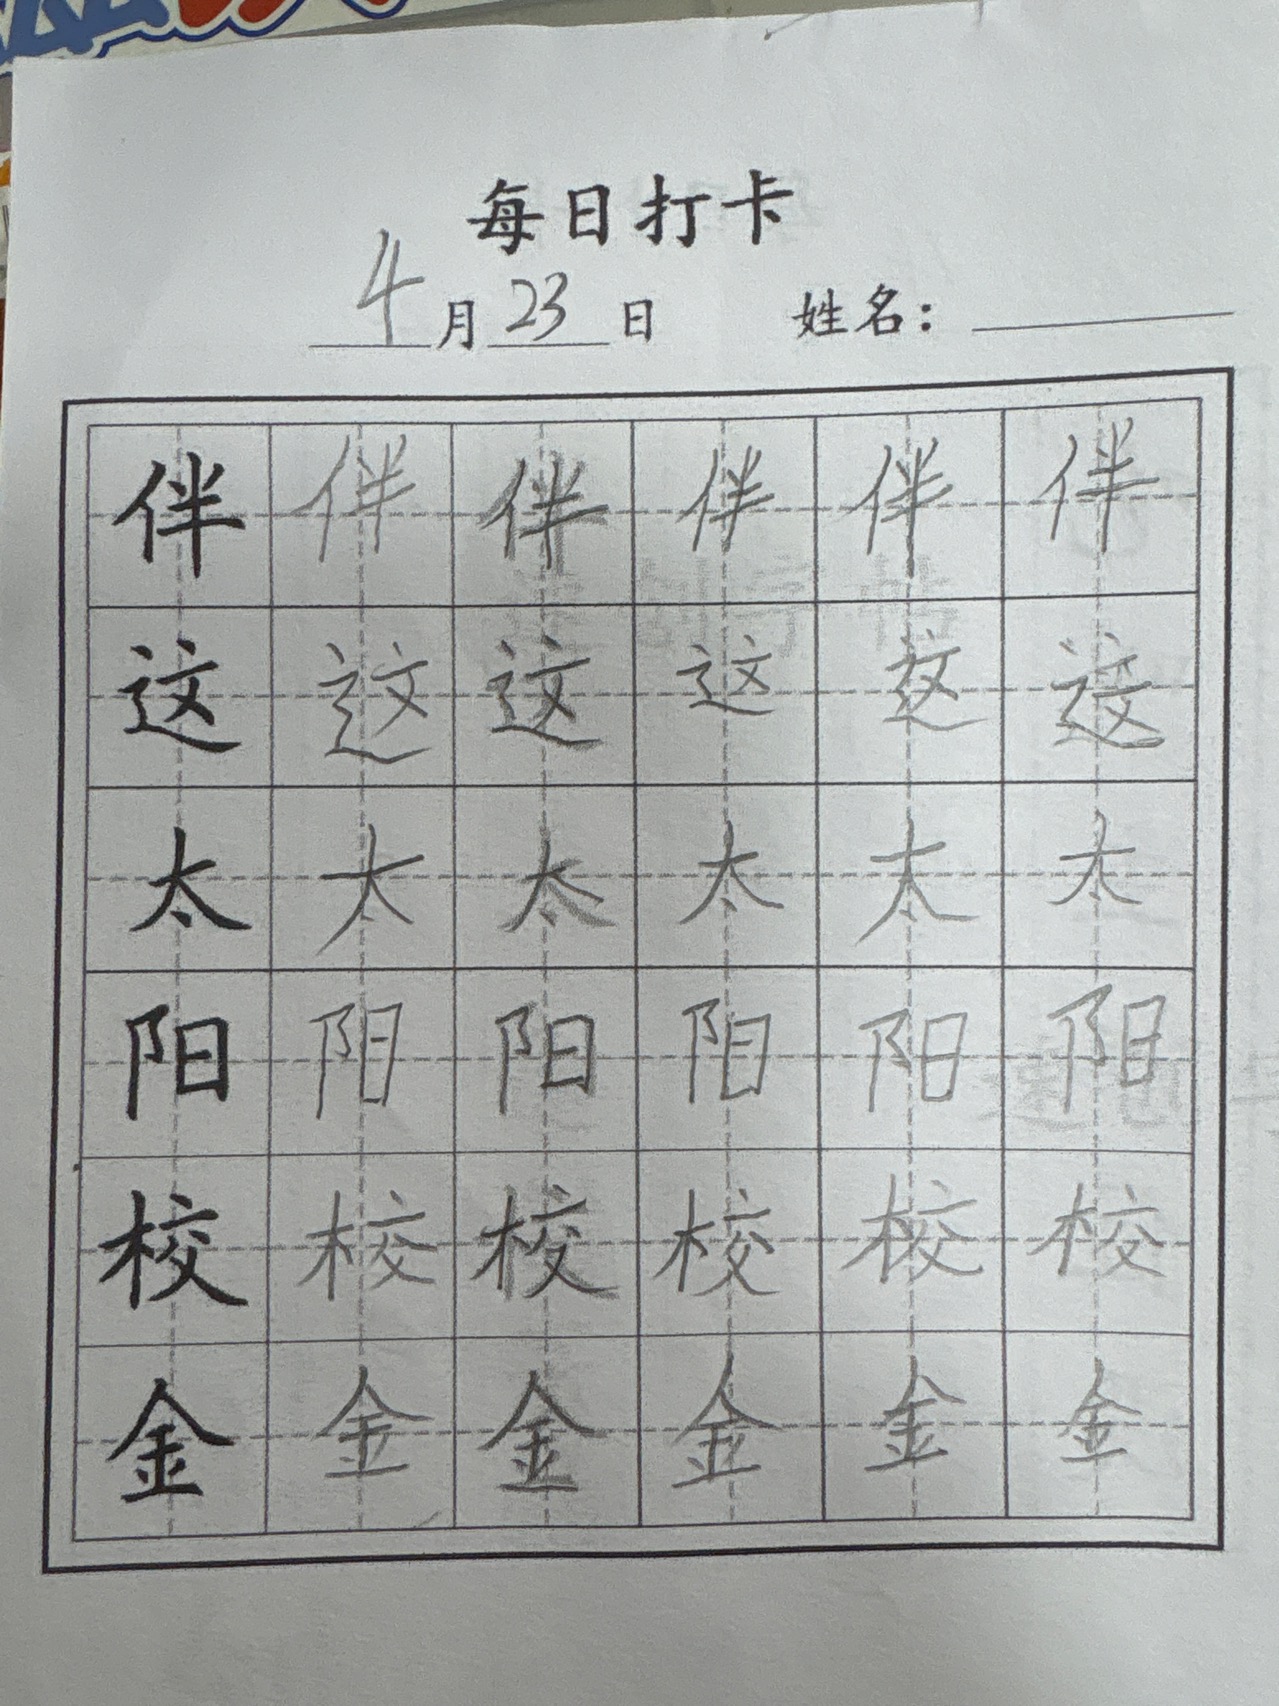 每日打卡
4月23日 姓名：
伴 伴 伴 伴 伴 伴
这 这 这 这 这 这
太 太 太 太 太 太
阳 阳 阳 阳 阳 阳
校 校 校 校 校 校
金 金 金 金 金 金